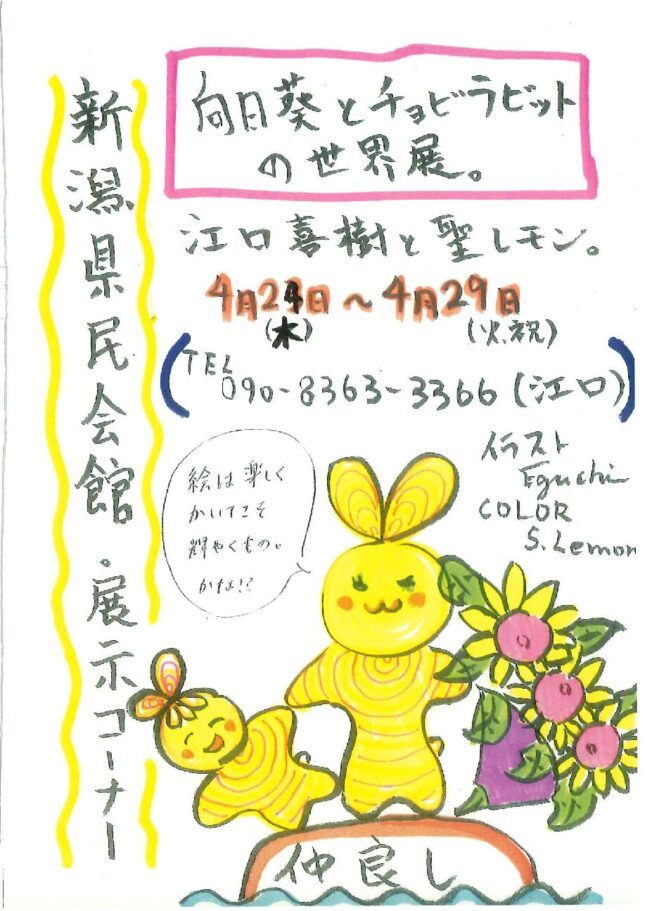 向日葵とチョビラビット
の世界展。
新潟県民会館・展示コーナー
江口喜樹と聖レモン。
4月24日〜4月29日
(木)
(火、祝)
TEL
090-8363-3366(江口)
イラスト
Eguchi
COLOR
S.Lemon
絵は楽しく
かいてこそ
輝やくもの。
かな!?
仲良し